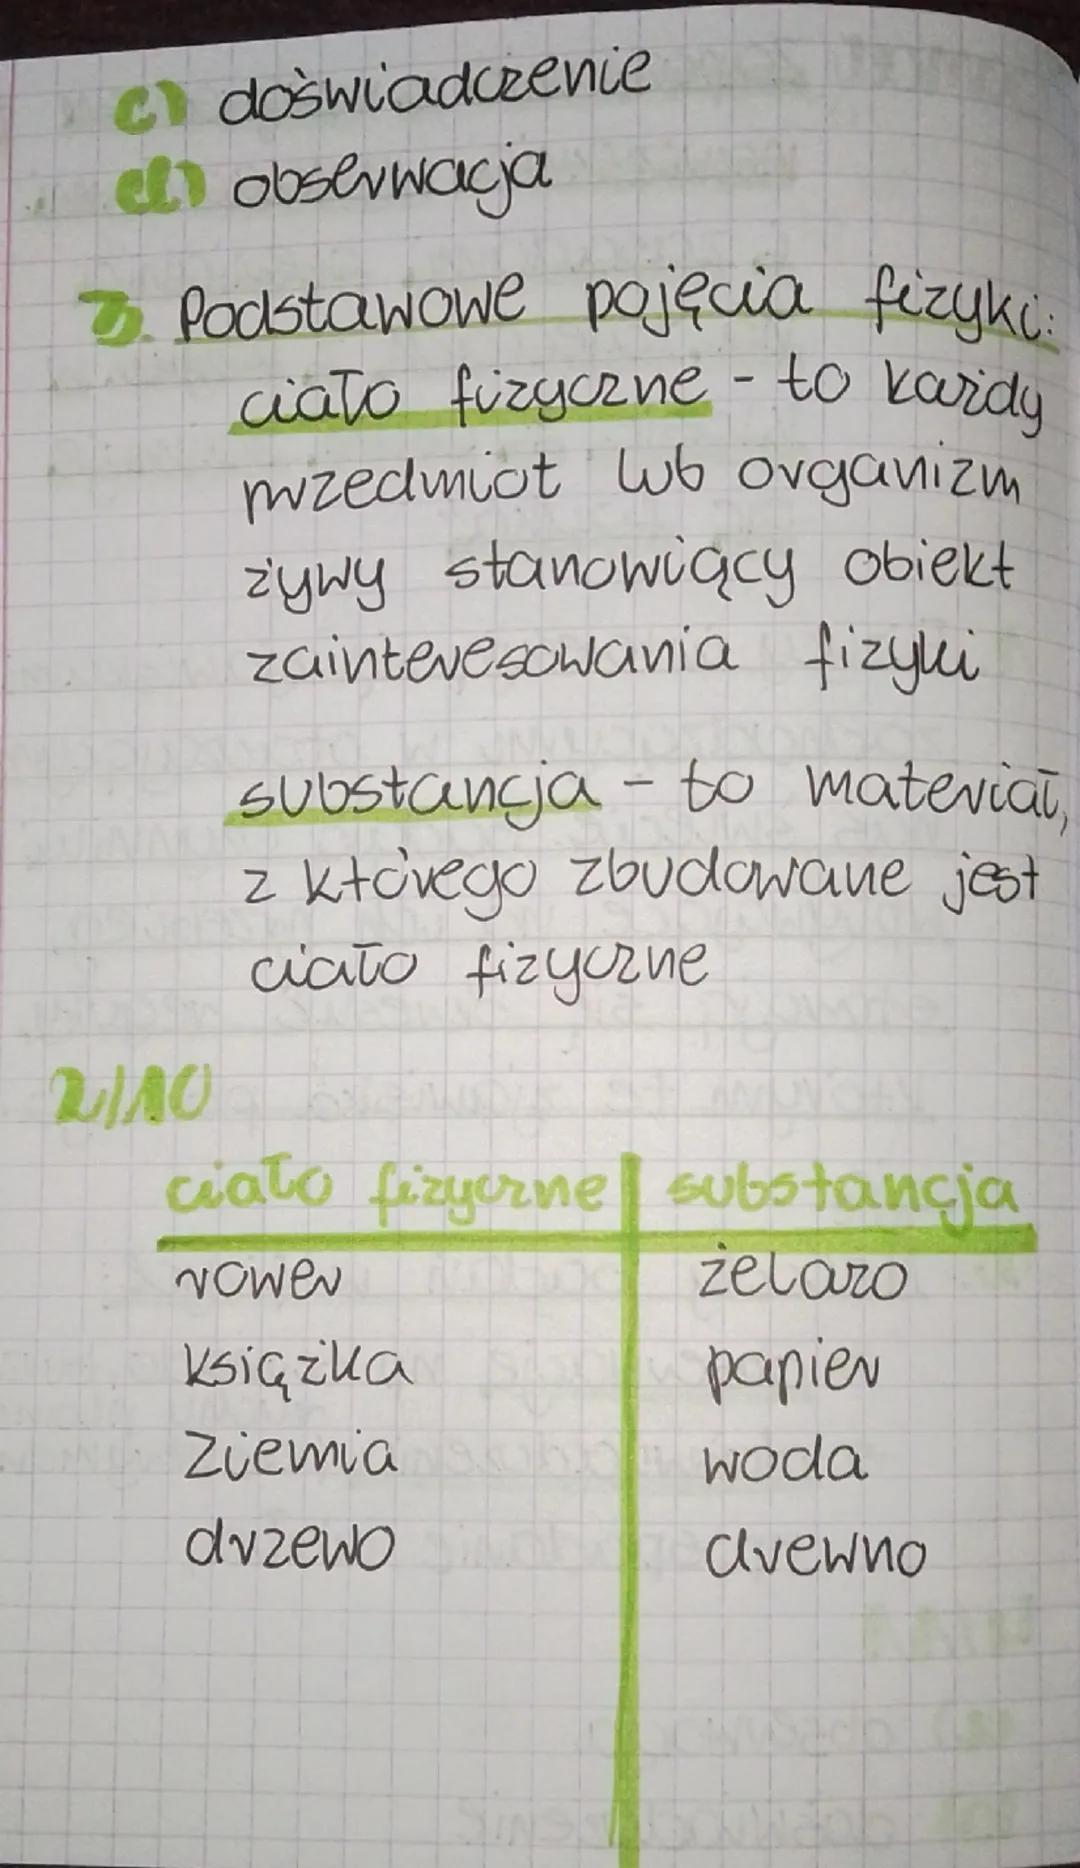 c) doświadczenie
d) obserwacja
3. Podstawowe pojęcia fizyki:
ciało fizyczne - to każdy
przedmiot lub organizm
żywy stanowiący obiekt
zainteresowania fizyki
substancja - to materiał,
z którego zbudowane jest
ciało fizyczne
2/10
ciało fizyczne substancja
rower żelazo
książka papier
Ziemia woda
drzewo drewno